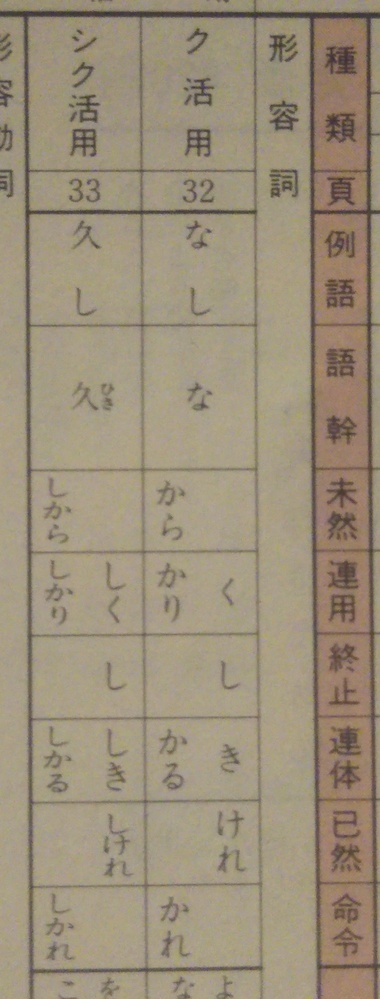 種類
頁
例語
語幹
未然
連用
終止
連体
已然
命令
形容詞
ク活用
32
なし
な
から
く
かり
し
き
かる
けれ
かれ
シク活用
33
久し
久ひさ
しから
しく
しかり
し
しき
しかる
しけれ
しかれ
よ
な
を
こ
形容動詞